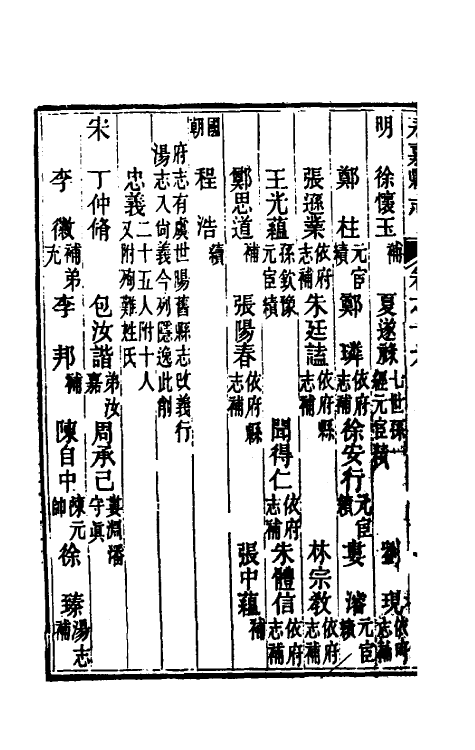 永嘉縣志
明 徐懷玉補 夏遂祿七世孫 劉現
鄭柱元宦績 鄭璘依府志補 徐安行元宦績 婁璿元宦績
張遜業依府志補 朱廷諡依府縣志補 林宗教依府志補
王光蘊孫欽豫元宦績 聞得仁依府志補 朱體信依府志補
鄭思道補 張陽春依府縣志補 張中蘊補
國朝 程浩績
府志有虞世陽舊縣志改義行
湯志入尚義今列隱逸此削
忠義二十五人附十人又附殉難姓氏
宋 丁仲脩 包汝諧弟汝嘉 周承己婁淵潘守眞
李徽補弟充 李邦補 陳自中陳元帥 徐臻湯志補